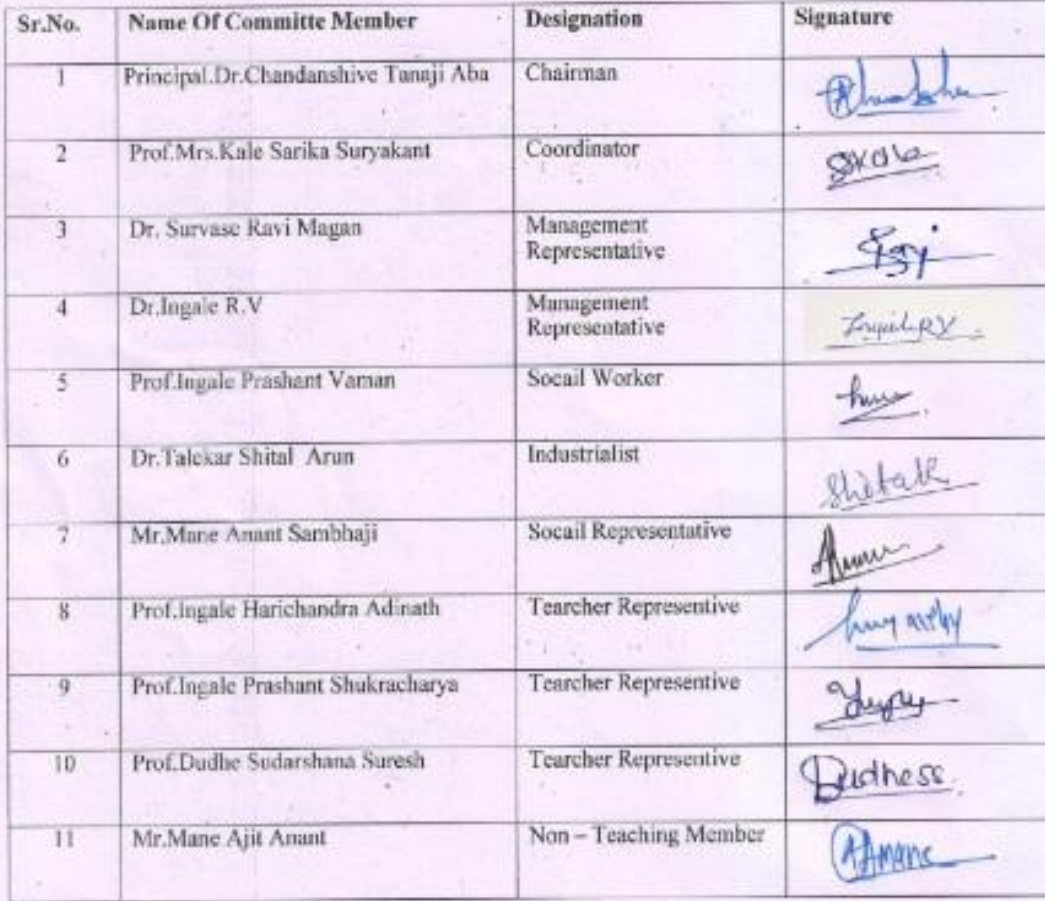 Sr.No. Name Of Committe Member Designation Signature
1 Principal.Dr.Chandanshive Tanaji Aba Chairman
2 Prof.Mrs.Kale Sarika Suryakant Coordinator
3 Dr. Survase Ravi Magan Management
Representative
4 Dr.Ingale R.V Management
Representative
IngaleRV
5 Prof.Ingale Prashant Vaman Socail Worker
6 Dr.Talekar Shital Arun Industrialist
7 Mr.Mane Anant Sambhaji Socail Representative
8 Prof.Ingale Harichandra Adinath Tearcher Representive
9 Prof.Ingale Prashant Shukracharya Tearcher Representive
10 Prof.Dudhe Sudarshana Suresh Tearcher Representive
Dudhess
11 Mr.Mane Ajit Anant Non – Teaching Member
AAMane